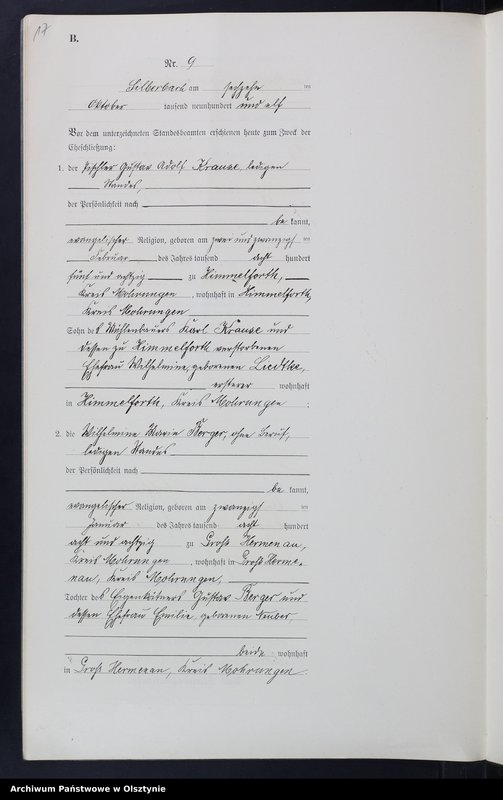 17
B.
Nr. 9
Silberbach am sechzehn ten
Oktober tausend neunhundert und elf
Vor dem unterzeichneten Standesbeamten erschienen heute zum Zweck der
Eheschließung:
1. der Tischler Gustav Adolf Krause, ledigen
Standes,
der Persönlichkeit nach
be kannt,
evangelischer Religion, geboren am zwei und zwanzigs ten
Februar des Jahres tausend acht hundert
fünf und achtzig zu Himmelforth,
Kreis Mohrungen, wohnhaft in Himmelforth,
Kreis Mohrungen
Sohn des Mühlenbauers Karl Krause und
dessen zu Himmelforth verstorbenen
Ehefrau Wilhelmine, geborenen Liedtke,
ersterer wohnhaft
in Himmelforth, Kreis Mohrungen ;
2. die Wilhelmine Marie Berger, ohne Beruf,
ledigen Standes
der Persönlichkeit nach
be kannt,
evangelischer Religion, geboren am zwanzigs ten
Januar des Jahres tausend acht hundert
acht und achtzig zu Groß Hermenau,
Kreis Mohrungen, wohnhaft in Groß Herme-
nau, Kreis Mohrungen,
Tochter des Eigenkätners Gustav Berger und
dessen Ehefrau Emilie, geborenen Neuber
beide wohnhaft
in Groß Hermenau, Kreis Mohrungen
Archiwum Państwowe w Olsztynie